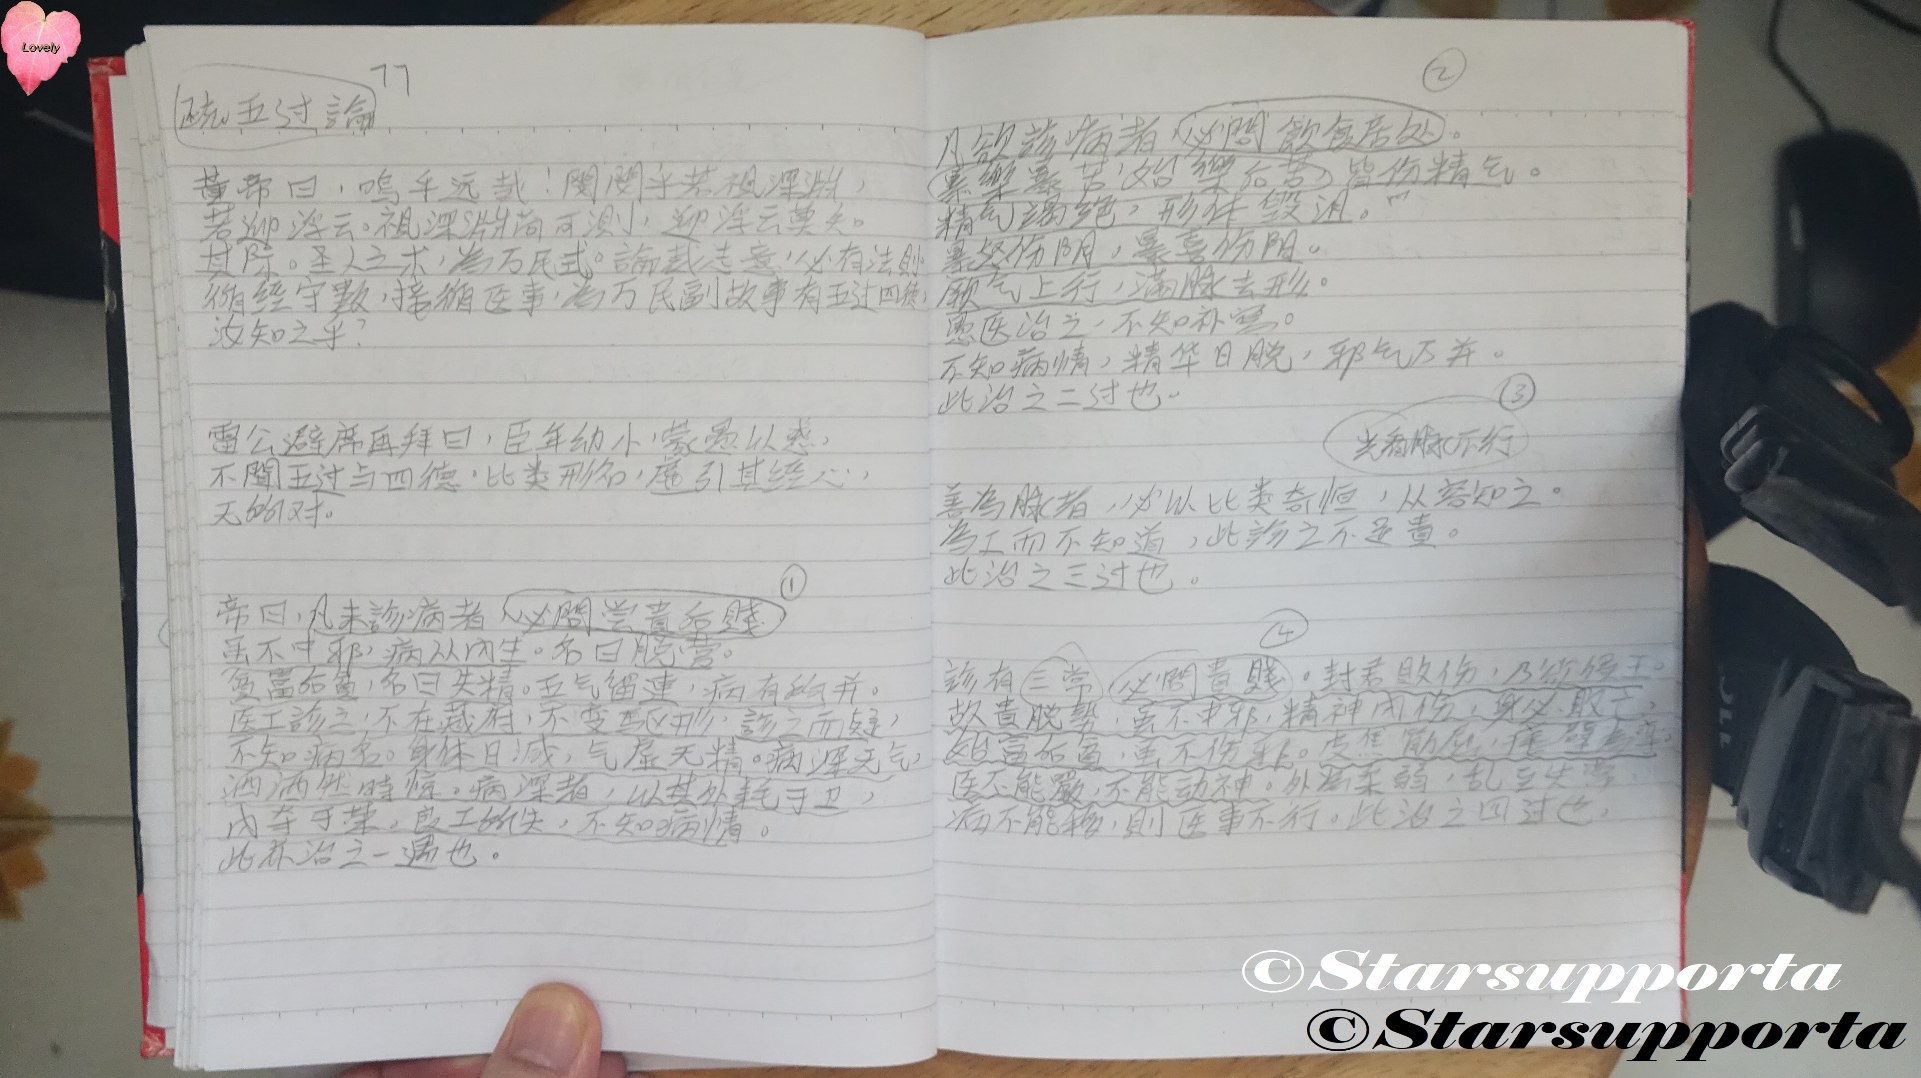 Lovely
疏五过論
77
黄帝曰，呜乎远哉！閔閔乎若視深淵，
若迎浮云。視深淵尚可測，迎浮云莫知
其际。圣人之术，为万民式。論裁志意，必有法則
循經守數，按循医事，为万民副故事有五过四德，
汝知之乎？
雷公避席再拜曰，臣年幼小，蒙愚以惑，
不聞五过与四德，比类形名，虛引其經心，
无所对。
①
帝曰，凡未診病者 必問尝貴后賤
虽不中邪，病从内生。名曰脱营。
尝富后貧，名曰失精。五气留連，病有所并。
医工診之，不在藏府，不变躯形，診之而疑，
不知病名。身体日减，气虚无精。病深无气，
洒洒然時惊。病深者，以其外耗于卫，
内夺于荣。良工所失，不知病情。
此亦治之一過也。
②
凡欲診病者 必問飲食居处。
暴樂暴苦 始樂后苦，皆伤精气。
精气竭绝，形体毁沮。
暴怒伤阴，暴喜伤阳。
厥气上行，滿脉去形。
愚医治之，不知补寫。
不知病情，精华日脱，邪气乃并。
此治之二过也。
③
光看脉不行
善为脉者，必以比类奇恒，从容知之。
为工而不知道，此診之不足貴。
此治之三过也。
④
診有三常，必問貴賤。封君敗伤，及欲侯王。
故貴脱勢，虽不中邪，精神内伤，身必敗亡，
始富后貧，虽不伤邪。皮焦筋屈，痿躄为挛。
医不能嚴，不能动神。外为柔弱，乱至失常
病不能移，則医事不行。此治之四过也，
©Starsupporta
©Starsupporta